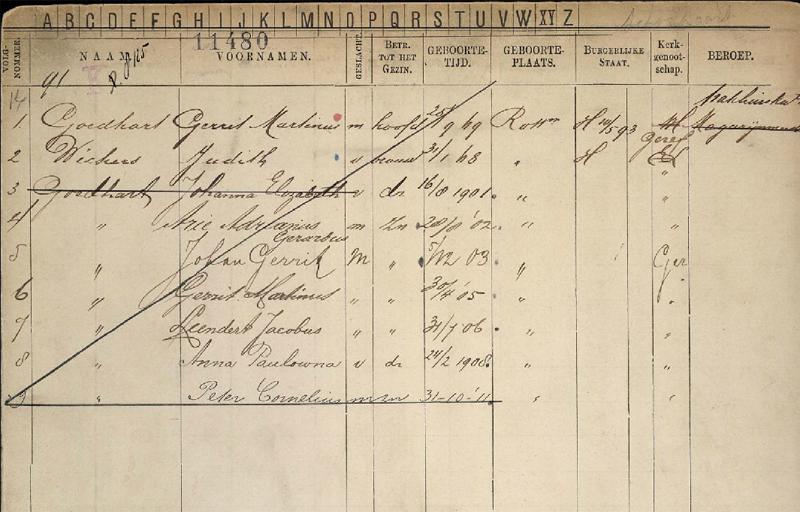 A B C D E F G H I J K L M N O P Q R S T U V W XY Z
11480
VOLG-NOMMER. NAAM VOORNAMEN. GESLACHT. Betr. TOT HET GEZIN. GEBOORTE-TIJD. GEBOORTE-PLAATS. BURGERLIJKE STAAT. Kerk-genoot-schap. BEROEP.
14 91
1 Goedhart Gerrit Martinus m hoofd 25/9 69 Rottm H 10/5 93 Geref
2 Wichers Judith v vrouw 31/1 68 " H
3 Goedhart Johanna Elizabeth v dr 16/8 1901. " "
4 " Arie Adrianus Gerardus m Zn 28/8 '02 " "
5 " Johan Gerrit M " 5/12 03. " Ger
6 " Gerrit Martinus " " 30/4 '05 " "
7 " Leendert Jacobus " " 31/7 06 " "
8 " Anna Paulowna v dr 24/2 1908. " "
9 " Peter Cornelius m zn 31-10-'11 " "